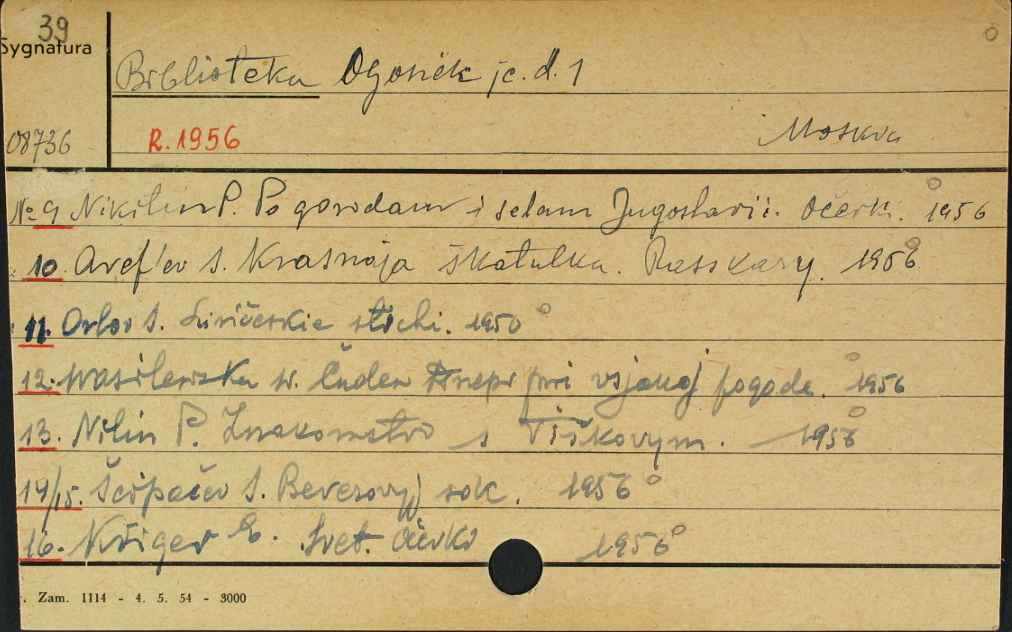 39
Sygnatura
Biblioteka Ogonëk jc. d. 1
08736 R. 1956 Moskva
№ 9 Nikitin P. Po gorodam i selam Jugoslavii. Očerki. 1956
10. Aref'ev S. Krasnaja škatulka. Rasskazy. 1956
11. Orlov S. Liričeskie stichi. 1950
12. Wasilewska W. Čuden Dnepr pri vsjakoj pogode. 1956
13. Nilin P. Znakomstvo s Tiškovym. 1956
14/15. Ščipačev S. Berezovyj sok. 1956
16. Kriger E. Svet. Očerki 1956
. Zam. 1114 - 4. 5. 54 - 3000